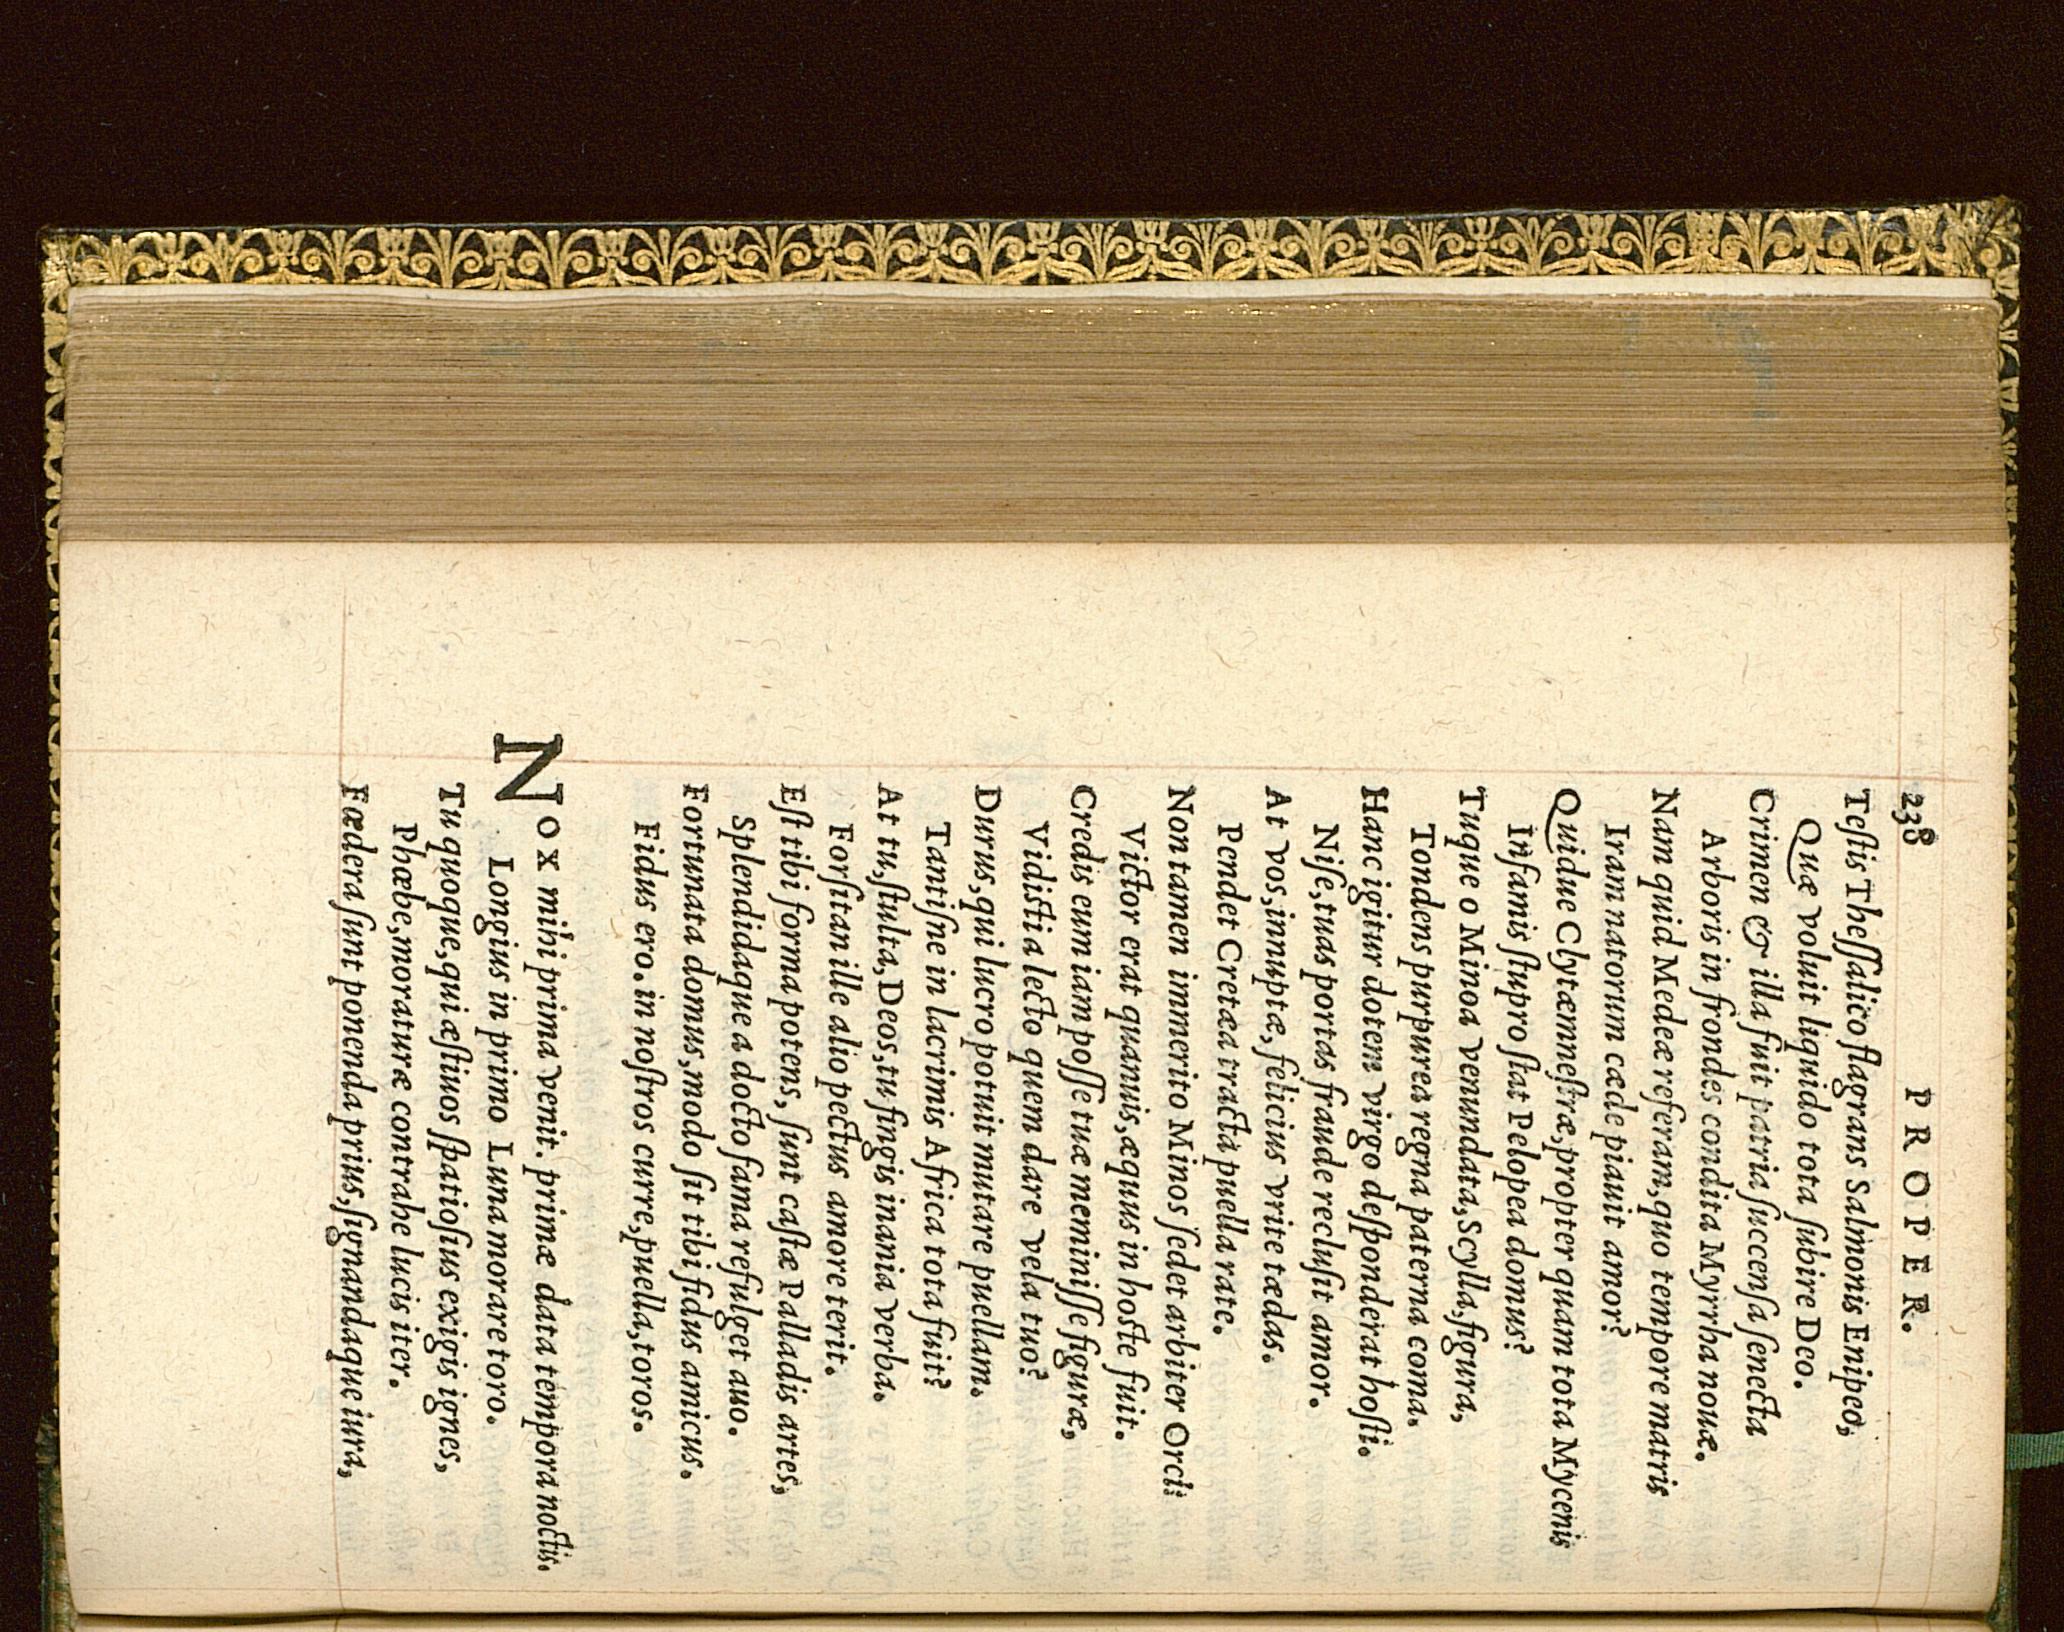 238 PROPER.
Teſtis Theſſalico flagrans Salmonis Enipeo,
Quæ voluit liquido tota ſubire Deo.
Crimen & illa fuit patria ſuccenſa ſenecta
Arboris in frondes condita Myrrha nouæ.
Nam quid Medeæ referam, quo tempore matris
Iram natorum cæde piauit amor?
Quidue Clytæmneſtræ, propter quam tota Mycenis
Infamis ſtupro ſtat Pelopea domus?
Tuque o Minoa venundata, Scylla, figura,
Tondens purpurea regna paterna coma.
Hanc igitur dotem virgo deſponderat hoſti.
Niſe, tuas portas fraude recluſit amor.
At vos, innuptæ, felicius vrite tædas.
Pendet Cretæa tracta puella rate.
Non tamen immerito Minos ſedet arbiter Orci:
Victor erat quamuis, æquus in hoſte fuit.
Credis eum iam poſſe tuæ meminiſſe figuræ,
Vidiſti a lecto quem dare vela tuo?
Durus, qui lucro potuit mutare puellam.
Tantiſne in lacrimis Africa tota fuit?
At tu, ſtulta, Deos, tu fingis inania verba.
Forſitan ille alio pectus amore terit.
Eſt tibi forma potens, ſunt caſtæ Palladis artes,
Splendidaque a docto fama refulget auo.
Fortunata domus, modo ſit tibi fidus amicus.
Fidus ero. in noſtros curre, puella, toros.
Nox mihi prima venit. primæ data tempora noctis.
Longius in primo Luna morare toro.
Tu quoque, qui æſtiuos ſpatioſius exigis ignes,
Phœbe, moraturæ contrahe lucis iter.
Fœdera ſunt ponenda prius, ſignandaque iura,